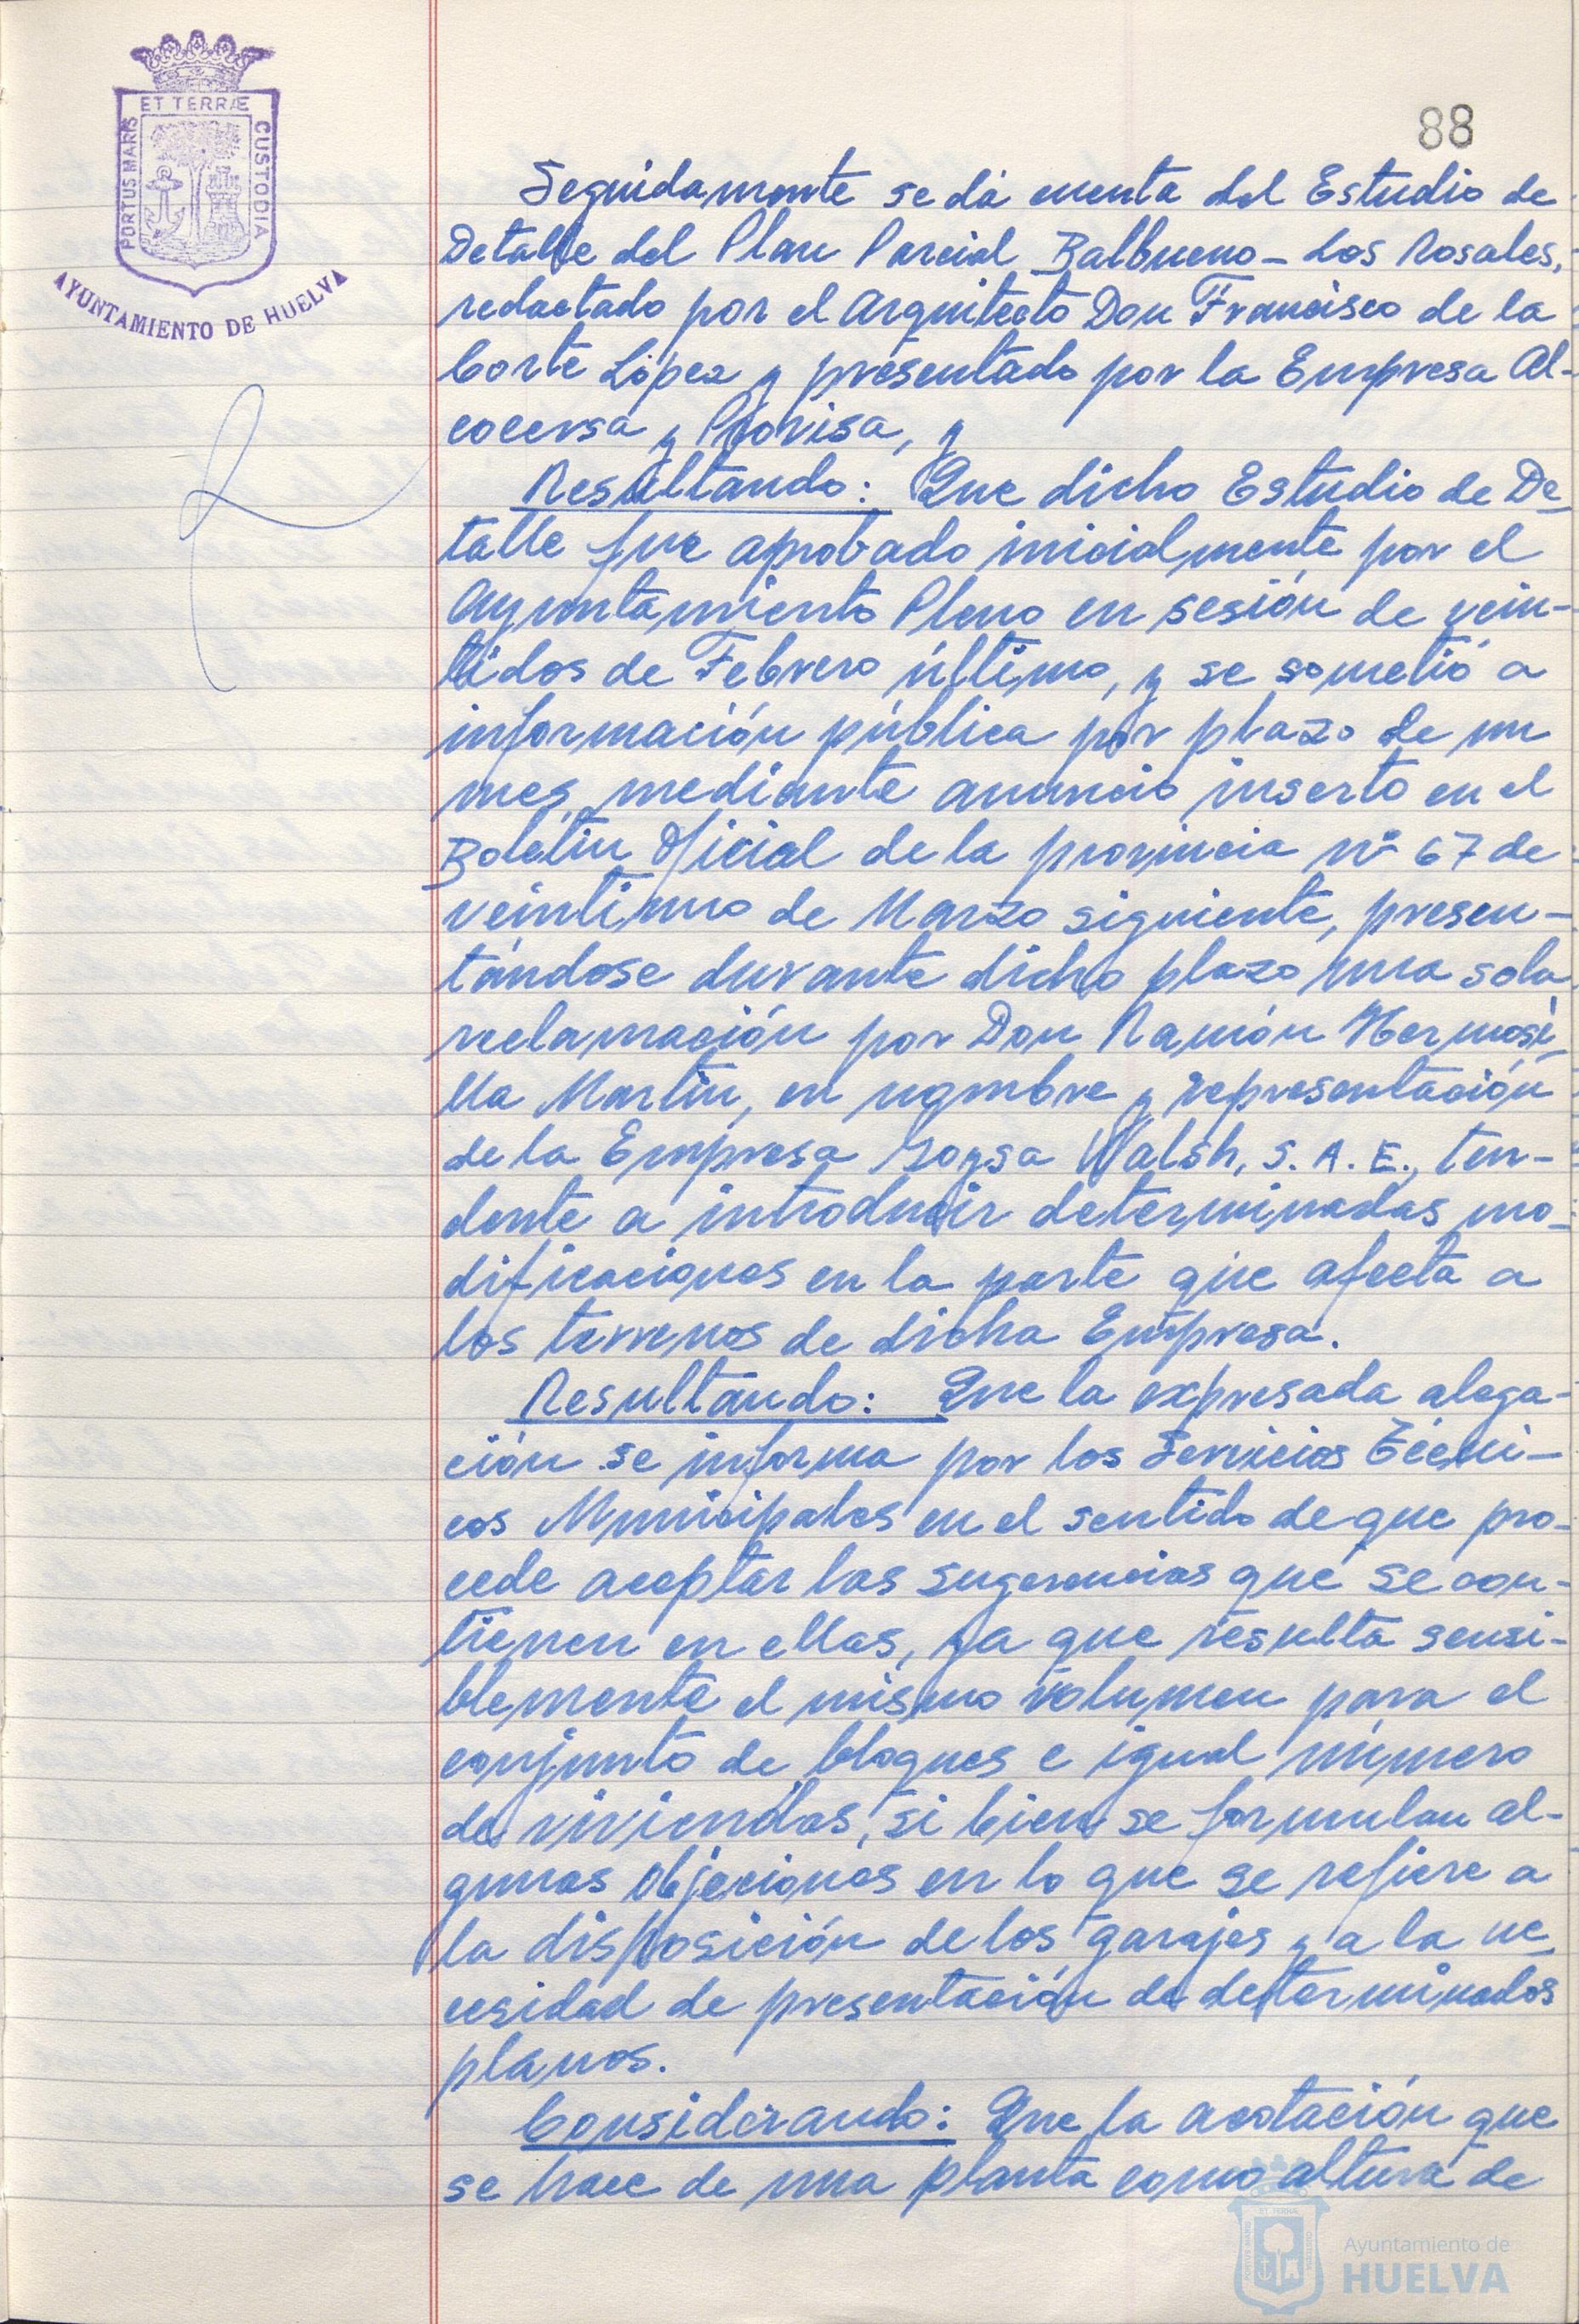 ET TERRÆ
PORTUS MARIS
CUSTODIA
AYUNTAMIENTO DE HUELVA
88
Seguidamente se dá cuenta del Estudio de
Detalle del Plan Parcial Balbueno - Los Rosales,
redactado por el Arquitecto Don Francisco de la
Corte López y presentado por la Empresa Al-
cocersa y Provisa, y
Resultando: Que dicho Estudio de De-
talle fue aprobado inicialmente por el
Ayuntamiento Pleno en sesión de vein-
tidos de Febrero último, y se sometió a
información pública por plazo de un
mes, mediante anuncio inserto en el
Boletín Oficial de la provincia nº 67 de
veintiuno de Marzo siguiente, presen-
tándose durante dicho plazo una sola
reclamación por Don Ramón Hermosi-
lla Martín, en nombre y representación
de la Empresa Joysa Walsh, S. A. E., ten-
dente a introducir determinadas mo-
dificaciones en la parte que afecta a
los terrenos de dicha Empresa.
Resultando: Que la expresada alega-
ción se informa por los Servicios Técni-
cos Municipales en el sentido de que pro-
cede aceptar las sugerencias que se con-
tienen en ellas, ya que resulta sensi-
blemente el mismo volumen para el
conjunto de bloques e igual número
de viviendas, si bien se formulan al-
gunas objeciones en lo que se refiere a
la disposición de los garajes y a la ne-
cesidad de presentación de determinados
planos.
Considerando: Que la acotación que
se hace de una planta como altura de
Ayuntamiento de
HUELVA